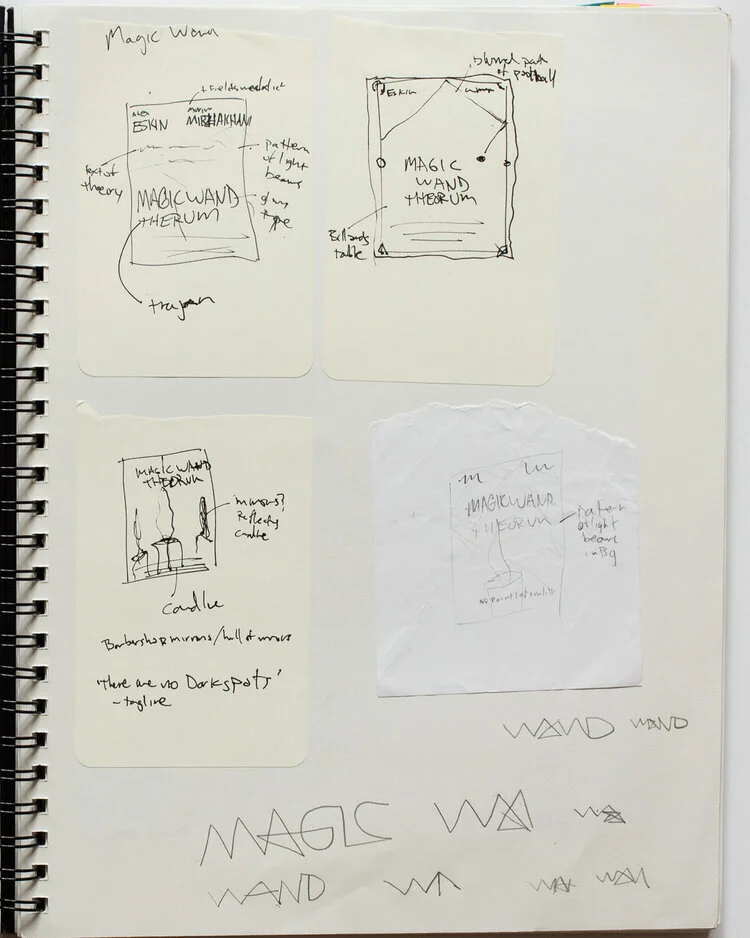 Magic Wand
+ Fields medalist
ALEX
ESKIN
MARYAM
MIRZHAKHANI
text of
theory
pattern
of light
beams
MAGIC WAND
THERUM
glowy
type
trajan
blurred path
of poolball
ESKIN
MAGIC
WAND
THEORUM
Billiards
table
MAGIC WAND
THEORUM
mirrors?
Reflecting
candle
candle
Barbershop mirrors/hall of mirrors
"There are no Dark spots"
- tagline
MAGIC WAND
THEORUM
pattern
of light
beams
in Bg
WAND WAND
MAGIC WA
WAND